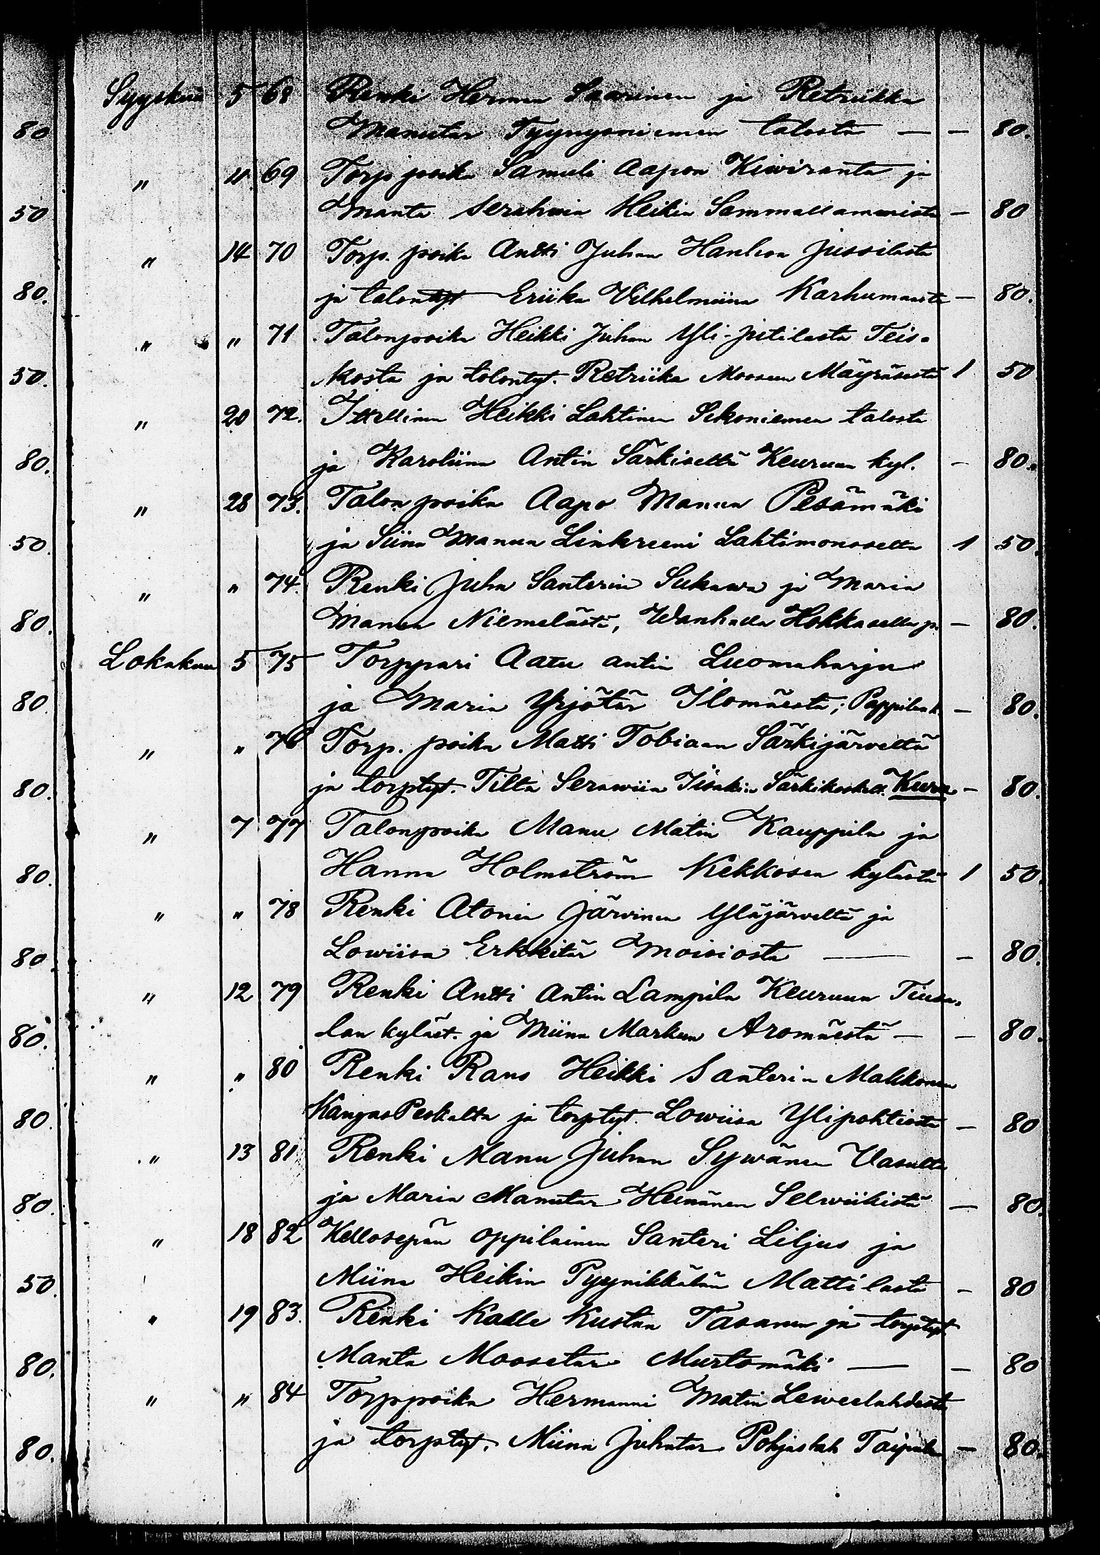 Syyskuu 5 68 Renki Herman Saarinen ja Retriikka
80 Manutar Tyynysniemen talosta — — 80.
" 11 69 Torp. poika Samuli Aapon Kiviranta ja
50 Manta Serahvia Heikin Sammallammista — 80
" 14 70 Torp. poika Antti Juhan Hanhoa Jussilasta
80. ja talontyt Eriika Vilhelmiina Karhumaasta — 80.
" " 71 Talonpoika Heikki Juhan Yli-Pitilasta Teis-
50. kosta ja talontyt. Retriika Moosen Mäyräsestä 1 50
" 20 72. Itsellinen Heikki Lahtinen Sikoniemen talosta
80. ja Karoliina Antin Särkiseltä Keuruun kyl. — 80.
" 28 73. Talonpoika Aapo Manun Pesämäki
50. ja Siina Manun Linkreeni Lahtimonoselta 1 50.
" " 74. Renki Juha Santerin Sukava ja Maria
80. Manun Niemelästä, Wanhalla Hokkasella p. — 80.
Lokakuu 5 75 Torppari Aatu Antin Luomaharju
80. ja Maria Yrjötär Ilomäestä; — 80.
" " 76 Torp. poika Matti Tobiaan Särkijärveltä
80. ja torptyt. Tilta Serawiia Iisakin Kuru — 80.
" 7 77 Talonpoika Manu Matin Kauppila ja
80. Hanna Holmström Kekkosen kylästä 1 50.
" " 78 Renki Atonia Järvinen Yläjärveltä ja
80. Lowiisa Erkkitär Moisiosta — — 80.
" 12 79 Renki Antti Antin Lampila Keuruun Tiusa-
80. lan kyläst. ja Miina Markun Aromäestä — — 80.
" " 80 Renki Rans Heikki Santerin Makkonen
80. KangasPeskalta ja torptyt. Lowiisa Ylipohtiosta — 80
" 13 81 Renki Manu Juhan Sywänen Uasulta
80. ja Maria Manutar Heinänen Selwiikistä — 80.
" 18 82 Kellosepän oppilainen Santeri Liljus ja
50. Miina Heikin Pyynikkälän Mattilasta — 80
" 19 83. Renki Kalle Kustaa Tasanen ja torptyt
80. Manta Moosetar Murtomäki — — 80
" " 84 Torppoika Hermanni Matin Leweelahdesta
80. ja torptyt. Miina Juhatar Pohjaslah Taipale — 80.